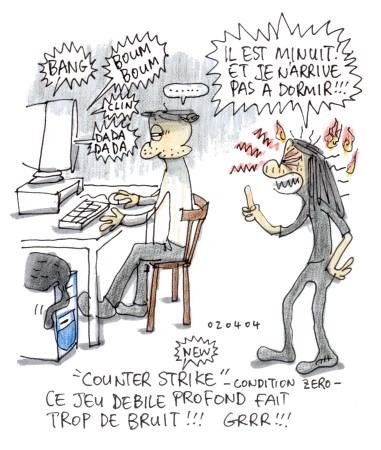 BANG
BOUM
BOUM
CLIN
DADA
DADA
......
IL EST MINUIT.
ET JE N'ARRIVE
PAS A DORMIR!!!
020404
NEW
"COUNTER STRIKE" -CONDITION ZERO-
CE JEU DEBILE PROFOND FAIT
TROP DE BRUIT!!! GRRR!!!